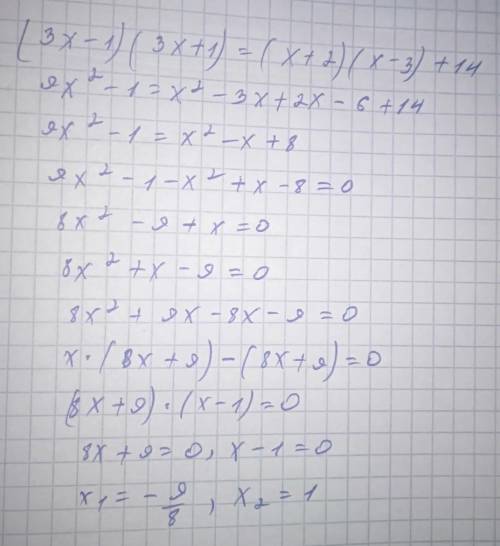 (3x-1)(3x+1)=(x+2)(x-3)+14
9x²-1=x²-3x+2x-6+14
9x²-1=x²-x+8
9x²-1-x²+x-8=0
8x²-9+x=0
8x²+x-9=0
8x²+9x-8x-9=0
x·(8x+9)-(8x+9)=0
(8x+9)·(x-1)=0
8x+9=0, x-1=0
x₁=-9/8, x₂=1